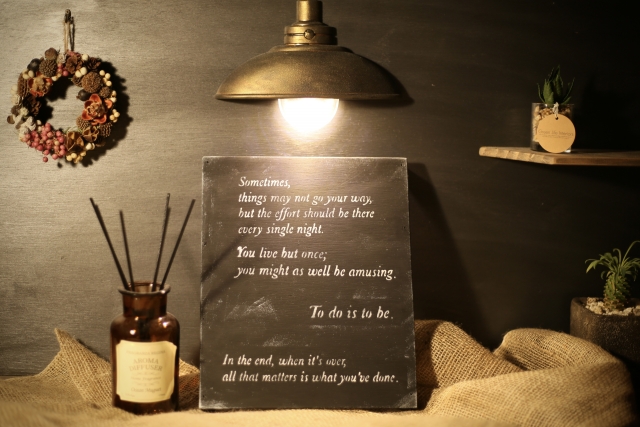 Sometimes,
things may not go your way,
but the effort should be there
every single night.
You live but once;
you might as well be amusing.
To do is to be.
In the end, when it's over,
all that matters is what you've done.
AROMA
DIFFUSER